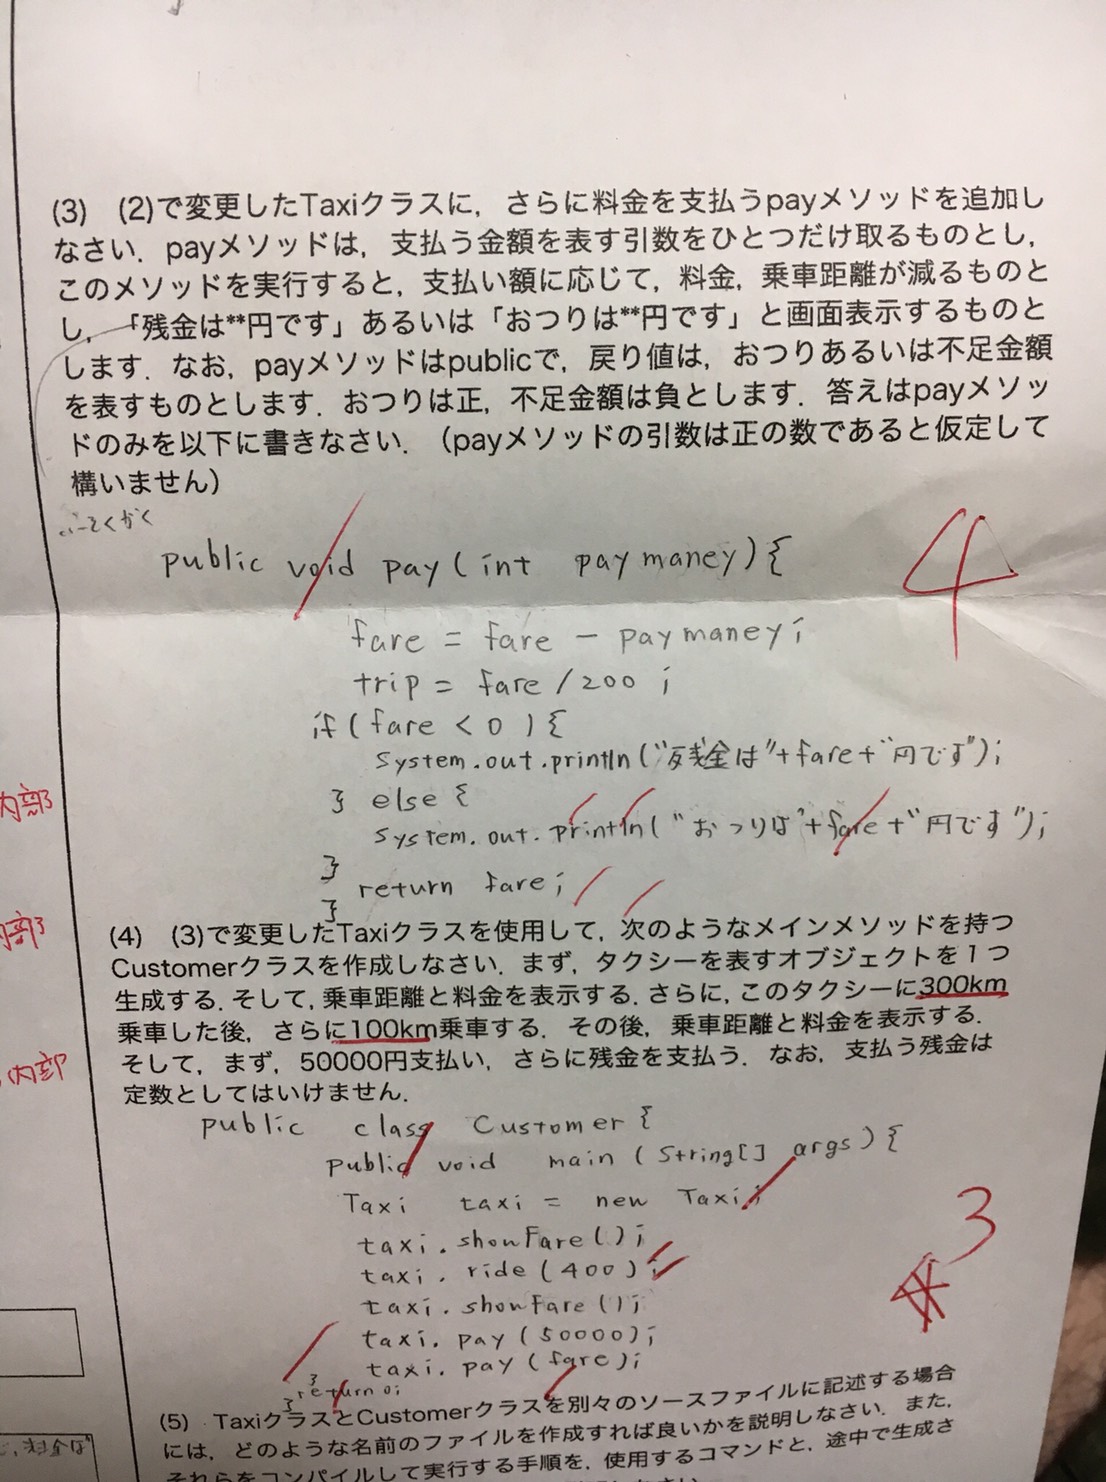 (3) (2)で変更したTaxiクラスに，さらに料金を支払うpayメソッドを追加し
なさい．payメソッドは，支払う金額を表す引数をひとつだけ取るものとし，
このメソッドを実行すると，支払い額に応じて，料金，乗車距離が減るものと
し，「残金は**円です」あるいは「おつりは**円です」と画面表示するものと
します．なお，payメソッドはpublicで，戻り値は，おつりあるいは不足金額
を表すものとします．おつりは正，不足金額は負とします．答えはpayメソッ
ドのみを以下に書きなさい．（payメソッドの引数は正の数であると仮定して
構いません）
public void pay (int paymaney){
4
fare = fare - paymaney;
trip = fare /200 ;
if( fare < 0 ) {
System.out.println("残金は"+fare+"円です");
内部
} else {
System.out.println("おつりは"+fare+"円です");
}
return fare;
}
内部
(4) (3)で変更したTaxiクラスを使用して，次のようなメインメソッドを持つ
Customerクラスを作成しなさい．まず，タクシーを表すオブジェクトを１つ
生成する．そして，乗車距離と料金を表示する．さらに，このタクシーに300km
乗車した後，さらに100km乗車する．その後，乗車距離と料金を表示する．
内部
そして，まず，50000円支払い，さらに残金を支払う．なお，支払う残金は
定数としてはいけません．
public class Customer {
public void main (String[] args){
Taxi taxi = new Taxi;
taxi. showFare();
3
taxi. ride (400);
taxi. showFare();
taxi. pay (50000);
taxi. pay (fare);
}
return 0;
}
(5) TaxiクラスとCustomerクラスを別々のソースファイルに記述する場合
には，どのような名前のファイルを作成すれば良いかを説明しなさい．また，
それらをコンパイルして実行する手順を，使用するコマンドと，途中で生成さ